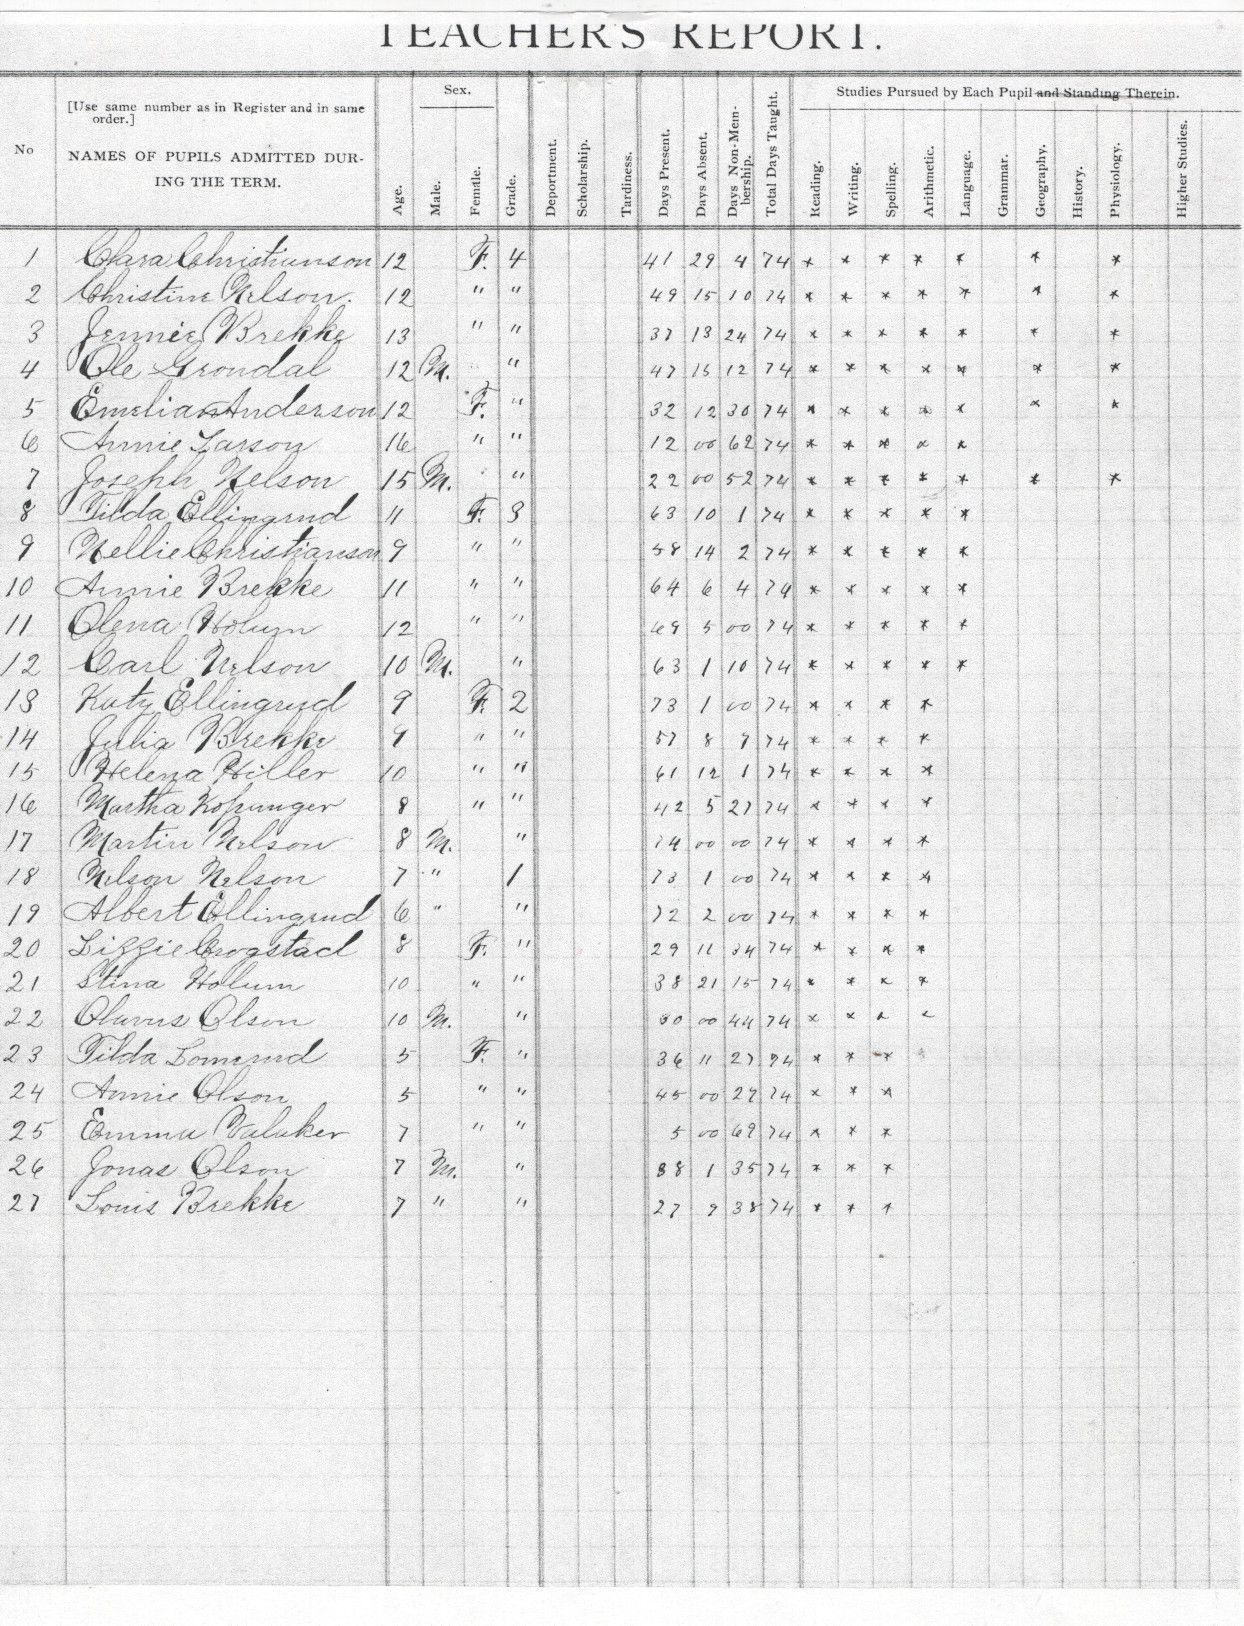 TEACHER'S REPORT.
No
[Use same number as in Register and in same order.]
NAMES OF PUPILS ADMITTED DURING THE TERM.
Age.
Sex.
Male.
Female.
Grade.
Deportment.
Scholarship.
Tardiness.
Days Present.
Days Absent.
Days Non-Membership.
Total Days Taught.
Studies Pursued by Each Pupil and Standing Therein.
Reading.
Writing.
Spelling.
Arithmetic.
Language.
Grammar.
Geography.
History.
Physiology.
Higher Studies.
1 Clara Christianson 12 F. 4 41 29 4 74 * * * * * * *
2 Christine Nelson. 12 " " 49 15 10 74 * * * * * * *
3 Jennie Brekke 13 " " 37 13 24 74 * * * * * * *
4 Ole Grondal 12 M. " 47 15 12 74 * * * * * * *
5 Emelia Anderson 12 F. " 32 12 30 74 * * * * * * *
6 Annie Larson 16 " " 12 00 62 74 * * * * *
7 Joseph Nelson 15 M. " 22 00 52 74 * * * * * * *
8 Tilda Ellingrud 11 F. 3 63 10 1 74 * * * * *
9 Nellie Christianson 9 " " 58 14 2 74 * * * * *
10 Annie Brekke 11 " " 64 6 4 74 * * * * *
11 Olena Holum 12 " " 69 5 00 74 * * * * *
12 Carl Nelson 10 M. " 63 1 10 74 * * * * *
13 Katy Ellingrud 9 F. 2 73 1 00 74 * * * *
14 Julia Brekke 9 " " 57 8 9 74 * * * *
15 Helena Hiller 10 " " 61 12 1 74 * * * *
16 Martha Kopunger 8 " " 42 5 27 74 * * * *
17 Martin Nelson 8 M. " 74 00 00 74 * * * *
18 Nelson Nelson 7 " 1 73 1 00 74 * * * *
19 Albert Ellingrud 6 " " 72 2 00 74 * * * *
20 Lizzie Crogstad 8 F. " 29 11 34 74 * * * *
21 Stina Holum 10 " " 38 21 15 74 * * * *
22 Olavus Olson 10 M. " 30 00 44 74 * * * *
23 Tilda Lomerud 5 F. " 36 11 27 74 * * *
24 Annie Olson 5 " " 45 00 29 74 * * *
25 Emma Valaker 7 " " 5 00 69 74 * * *
26 Jonas Olson 7 M. " 38 1 35 74 * * *
27 Louis Brekke 7 " " 27 9 38 74 * * *